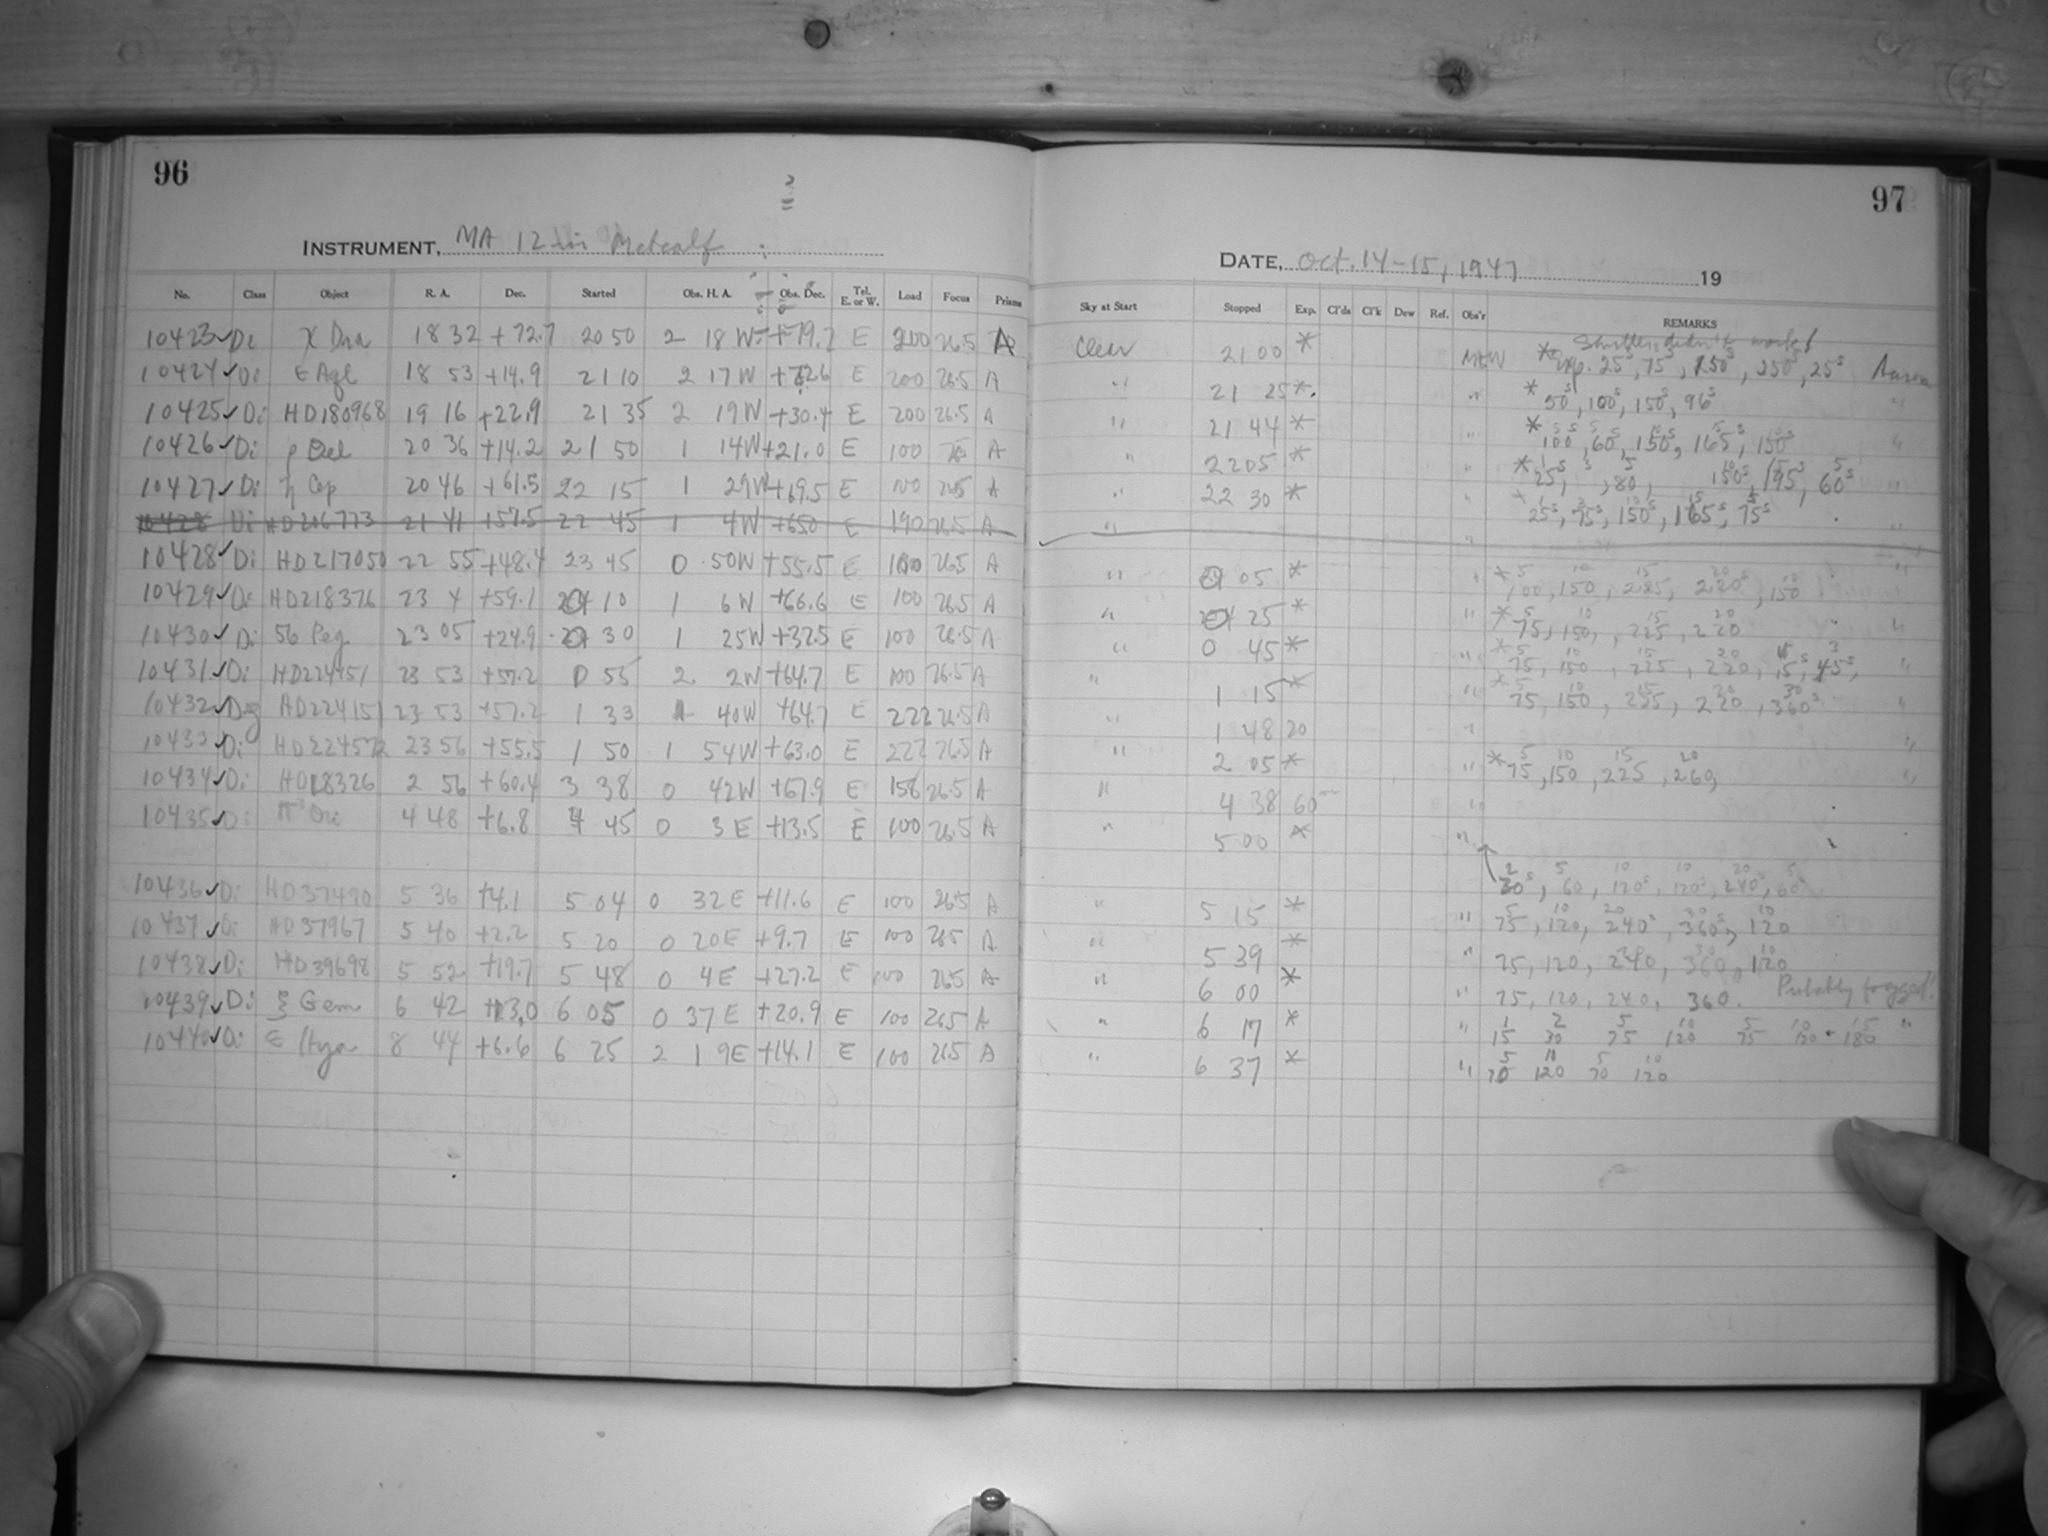 96
INSTRUMENT, MA 12 in Metcalf
No. Class Object R. A. Dec. Started Obs. H. A. Obs. Dec. Tel. E. or W. Load Focus Prisms
10423 ✓ Di χ Dra 18 32 +72.7 20 50 2 18 W +79.2 E 200 26.5 A
10424 ✓ Di ε Aql 18 53 +14.9 21 10 2 17 W E 200 26.5 A
10425 ✓ Di HD180968 19 16 +22.9 21 35 2 19 W +30.4 E 200 26.5 A
10426 ✓ Di ρ Del 20 36 +14.2 21 50 1 14 W +21.0 E 100 A
10427 ✓ Di η Cep 20 46 +61.5 22 15 1 29 W +69.5 E 100 26.5 A
10428 Di HD206773 21 41 +57.5 22 45 1 4 W +65.0 E 190 26.5 A
10428 ✓ Di HD217050 22 55 +48.4 23 45 0 50 W +55.5 E 100 26.5 A
10429 ✓ Di HD218376 23 4 +59.1 10 1 6 W +66.6 E 100 26.5 A
10430 ✓ Di 56 Peg 23 05 +24.9 30 1 25 W +32.5 E 100 26.5 A
10431 ✓ Di HD224151 23 53 +57.2 0 55 2 2 W +64.7 E 100 26.5 A
10432 ✓ HD224151 23 53 +57.2 1 33 40 W +64.7 E 222 26.5 A
10433 ✓ Di HD224572 23 56 +55.5 1 50 1 54 W +63.0 E 222 26.5 A
10434 ✓ Di HD18326 2 56 +60.4 3 38 0 42 W +67.9 E 158 26.5 A
10435 ✓ Di π³ Ori 4 48 +6.8 4 45 0 3 E +13.5 E 100 26.5 A
10436 ✓ Di HD37490 5 36 +4.1 5 04 0 32 E +11.6 E 100 26.5 A
10437 ✓ Di HD37967 5 40 +2.2 5 20 0 20 E +9.7 E 100 26.5 A
10438 ✓ Di HD39698 5 52 +19.7 5 48 0 4 E +27.2 E 100 26.5 A
10439 ✓ Di ξ Gem 6 42 +13.0 6 05 0 37 E +20.9 E 100 26.5 A
10440 ✓ Di ε Hya 8 44 +6.6 6 25 2 19 E +14.1 E 100 26.5 A
97
DATE, Oct. 14-15, 1947 19
Sky at Start Stopped Exp. Cl'ds Cl'k Dew Ref. Obs'r REMARKS
Shutters didn't work
Clear 21 00 * MHW * Exp. 25s, 75s, 150s, 250s, 25s
" 21 25 * " * 50s, 100s, 150s, 96s "
" 21 44 * " * 100, 60s, 150s, 165s, 150s "
" 22 05 * " * 25s, , 80, 150s, 195s, 60s "
" 22 30 * " * 25s, 75s, 150s, 165s, 75s "
" "
" 05 * " * 100, 150, 225, 220s, 150 "
" 25 * " * 75, 150, 225, 220 "
" 0 45 * " * 75, 150, 225, 220, 15s, 45s, "
" 1 15 * " * 75, 150, 255, 220, 360s "
" 1 48 20 " "
" 2 05 * " * 75, 150, 225, 260, "
" 4 38 60m "
" 5 00 * "
2 5 10 10 20 5
30s, 60, 120s, 120s, 240s, 60s
5 10 20 30 10
" 5 15 * " 75, 120, 240s, 360s, 120
" 5 39 * " 75, 120, 240, 360, 120
" 6 00 * " 75, 120, 240, 360. Probably fogged!
1 2 5 10 5 10 15
" 6 17 * " 15 30 75 120 75 120 180 "
5 10 5 10
" 6 37 * " 70 120 70 120